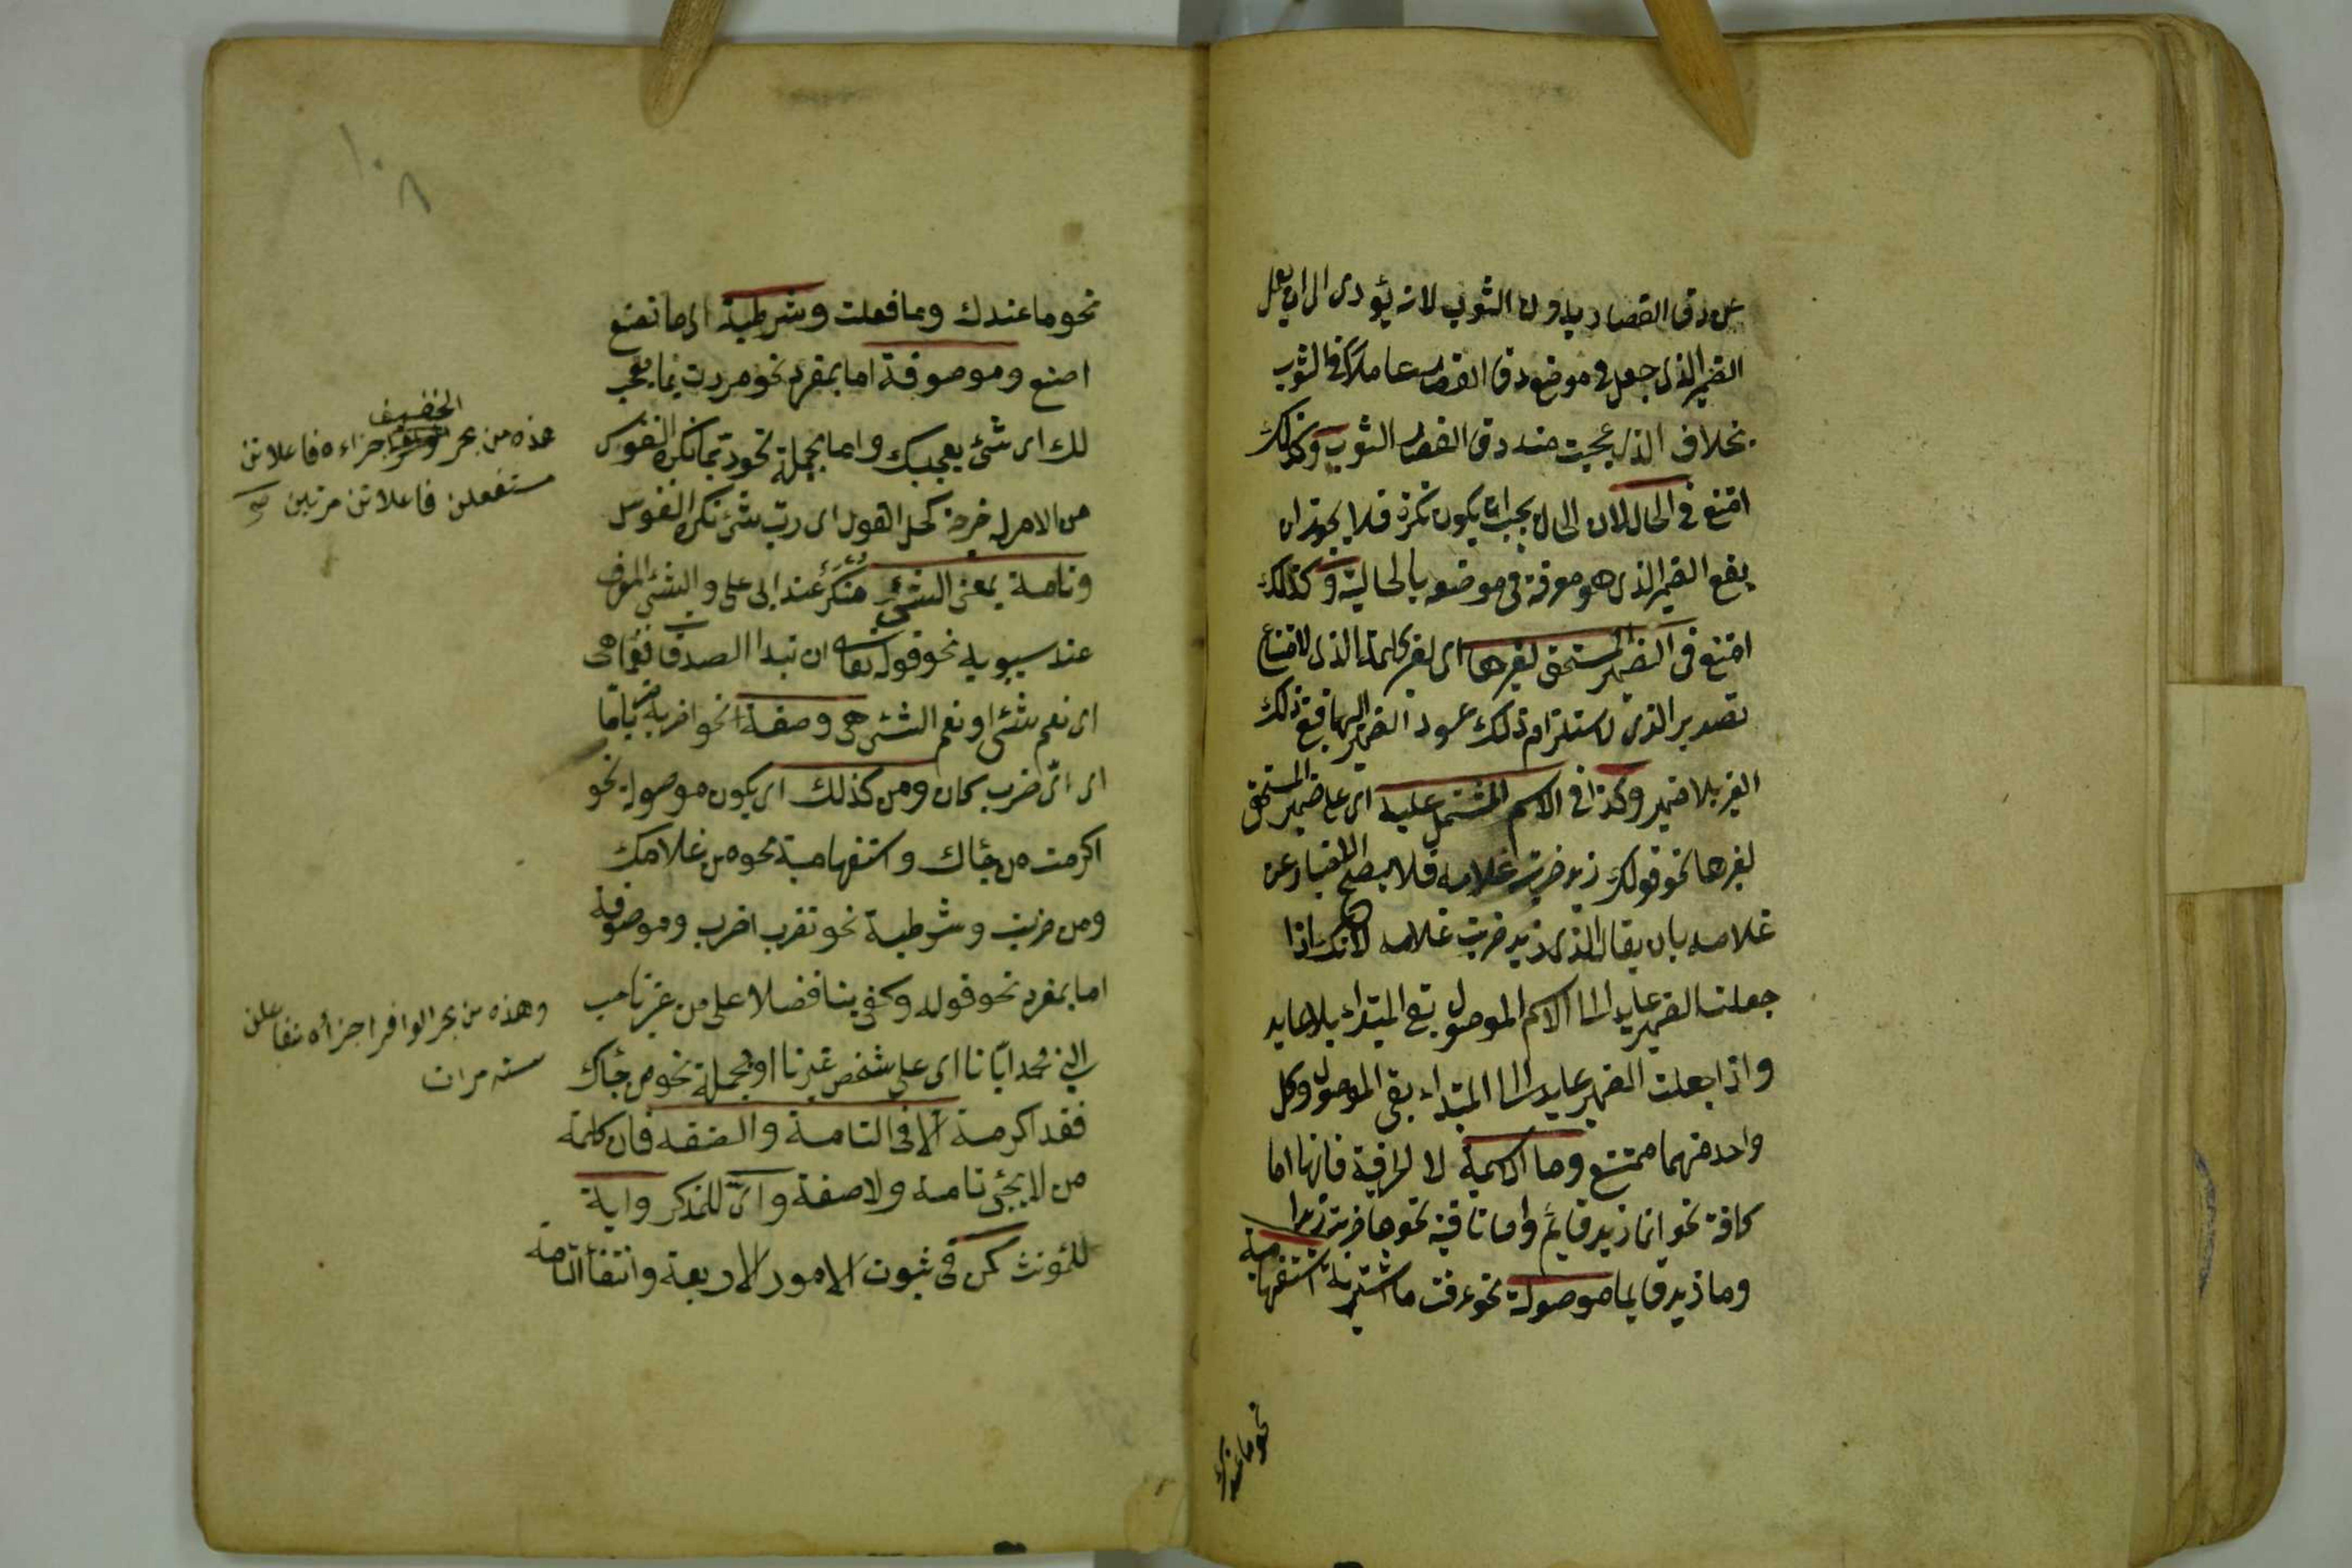 من دق القصار بدون الثوب لانه يؤدى الى ان يعمل
الضمير الذى جعل فى موضع دق القصار عاملا فى الثوب
بخلاف الذى عجبت منه دق القصار الثوب وكذلك
امتنع فى الحال لان الحال يجب ان يكون نكرة فلا يجوز ان
يقع الضمير الذى هو معرفة فى موضعه بالحالية وكذلك
امتنع فى الضمير المستحق لغيرها اى لغير كلمة الذى لامتناع
تصدير الذى لاستلزام ذلك عود الضمير اليها فبقى ذلك
الغير بلا ضمير وكذا فى الاسم المشتمل عليه اى على ضمير المستحق
لغيرها نحو قولك زيد ضربت غلامه فلا يصح الاخبار عن
غلامه بان يقال الذى زيد ضربت غلامه لانك اذا
جعلت الضمير عايدا الى الاسم الموصول بقى المبتداء بلا عايد
واذا جعلت الضمير عايدا الى المبتداء بقى الموصول وكل
واحد منهما ممتنع وما الاسمية لا الحرفية فانها اما
كافة نحو انما زيد قائم واما نافية نحو ما ضربت زيدا
وما زيد قايما موصولة نحو عرفت ما اشتريته استفهامية
نحو ما عندك
نحو ما عندك وما فعلت وشرطية اى ما تصنع
اصنع وموصوفة اما بمفرد نحو مررت بما معجب
لك اى شئ يعجبك واما بجملة نحو ربما تكره النفوس
من الامر له فرجة كحل العقول اى رب شئ تكره النفوس
وتامة بمعنى الشئ منكر عند ابى على والشئ المعرف
عند سيبويه نحو قوله تعالى ان تبدوا الصدقات فنعما هى
اى نعم شئ او نعم الشئ هى وصفة نحو اضربه ضربا ما
اى اىّ ضرب كان ومن كذلك اى يكون موصولة نحو
اكرمت من جاءك واستفهامية نحو من غلامك
ومن ضربت وشرطية نحو من تضرب اضرب وموصوفة
اما بمفرد نحو قوله وكفى بنا فضلا على من غيرنا حب
النبى محمد ايانا اى على شخص غيرنا او بجملة نحو من جاءك
فقد اكرمته الا فى التامة والصفة فان كلمة
من لا يجئ تامة ولا صفة واىّ للمذكر واية
للمؤنث كمن فى ثبوت الامور الاربعة وانتفاء التامة
الخفيف
هذه من بحر اجزاءه فاعلاتن
مستفعلن فاعلاتن مرتين
وهذه من بحر الوافر اجزأه مفاعلتن
سته مرات